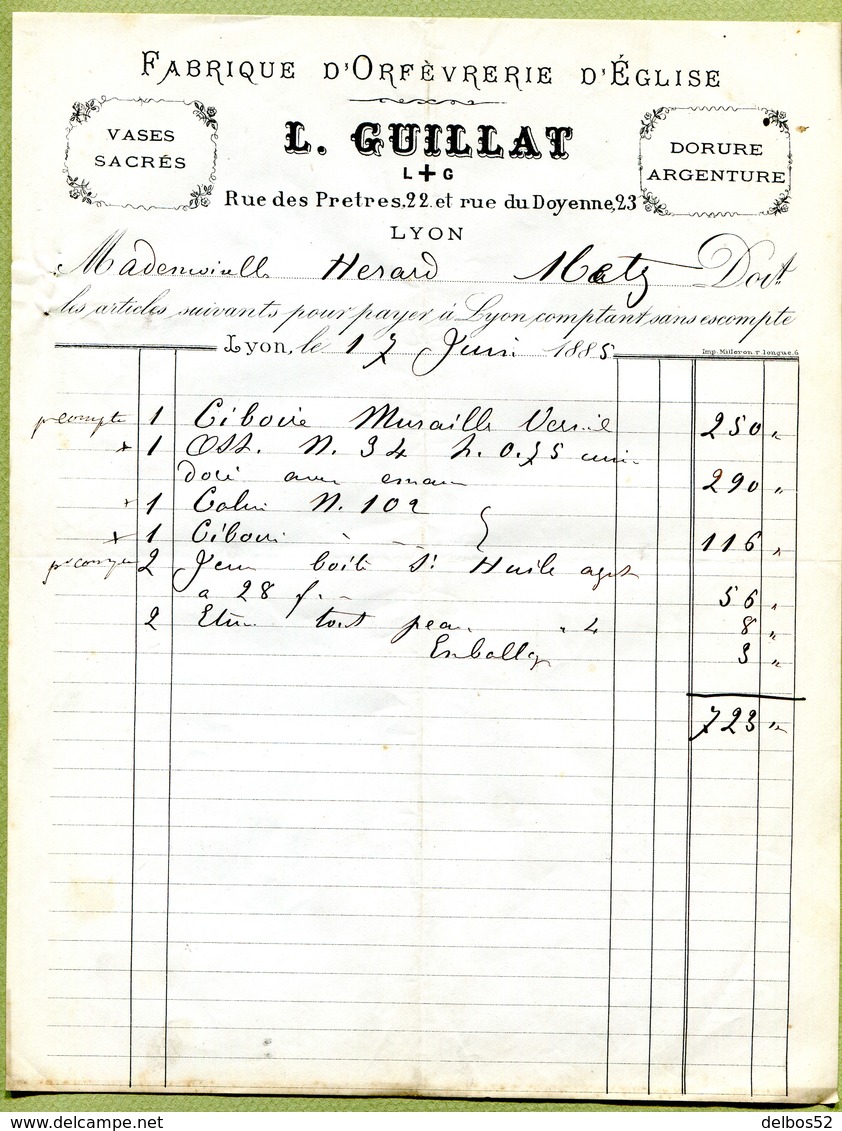 FABRIQUE D'ORFÈVRERIE D'ÉGLISE
VASES SACRÉS
L. GUILLAT
L G
DORURE ARGENTURE
Rue des Pretres, 22 et rue du Doyenne, 23
LYON
Mademoiselle Herard Metz Doit
les articles suivants pour payer à Lyon comptant sans escompte
Lyon, le 17 Juin 1885
Imp. Milleron r longue. 6
pr compte 1 Ciboire Muraille Vermeil 250 "
x 1 Ost. N. 34 h. 0.75
doré avec email 290 "
x 1 Calice N. 102
x 1 Ciboire - - } 116 "
pr compte 2 Jeux boite St Huile argt
a 28 f. - 56 "
2 Etui tout peau " 4 8 "
Emballage 3 "
723 "
www.delcampe.net
delbos52